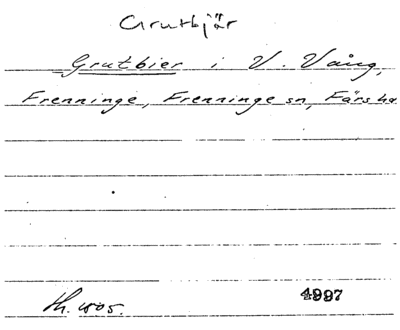 Grutbjär
Grutbier i V. Vång,
Frenninge, Frenninge sn, Färs hd
4997